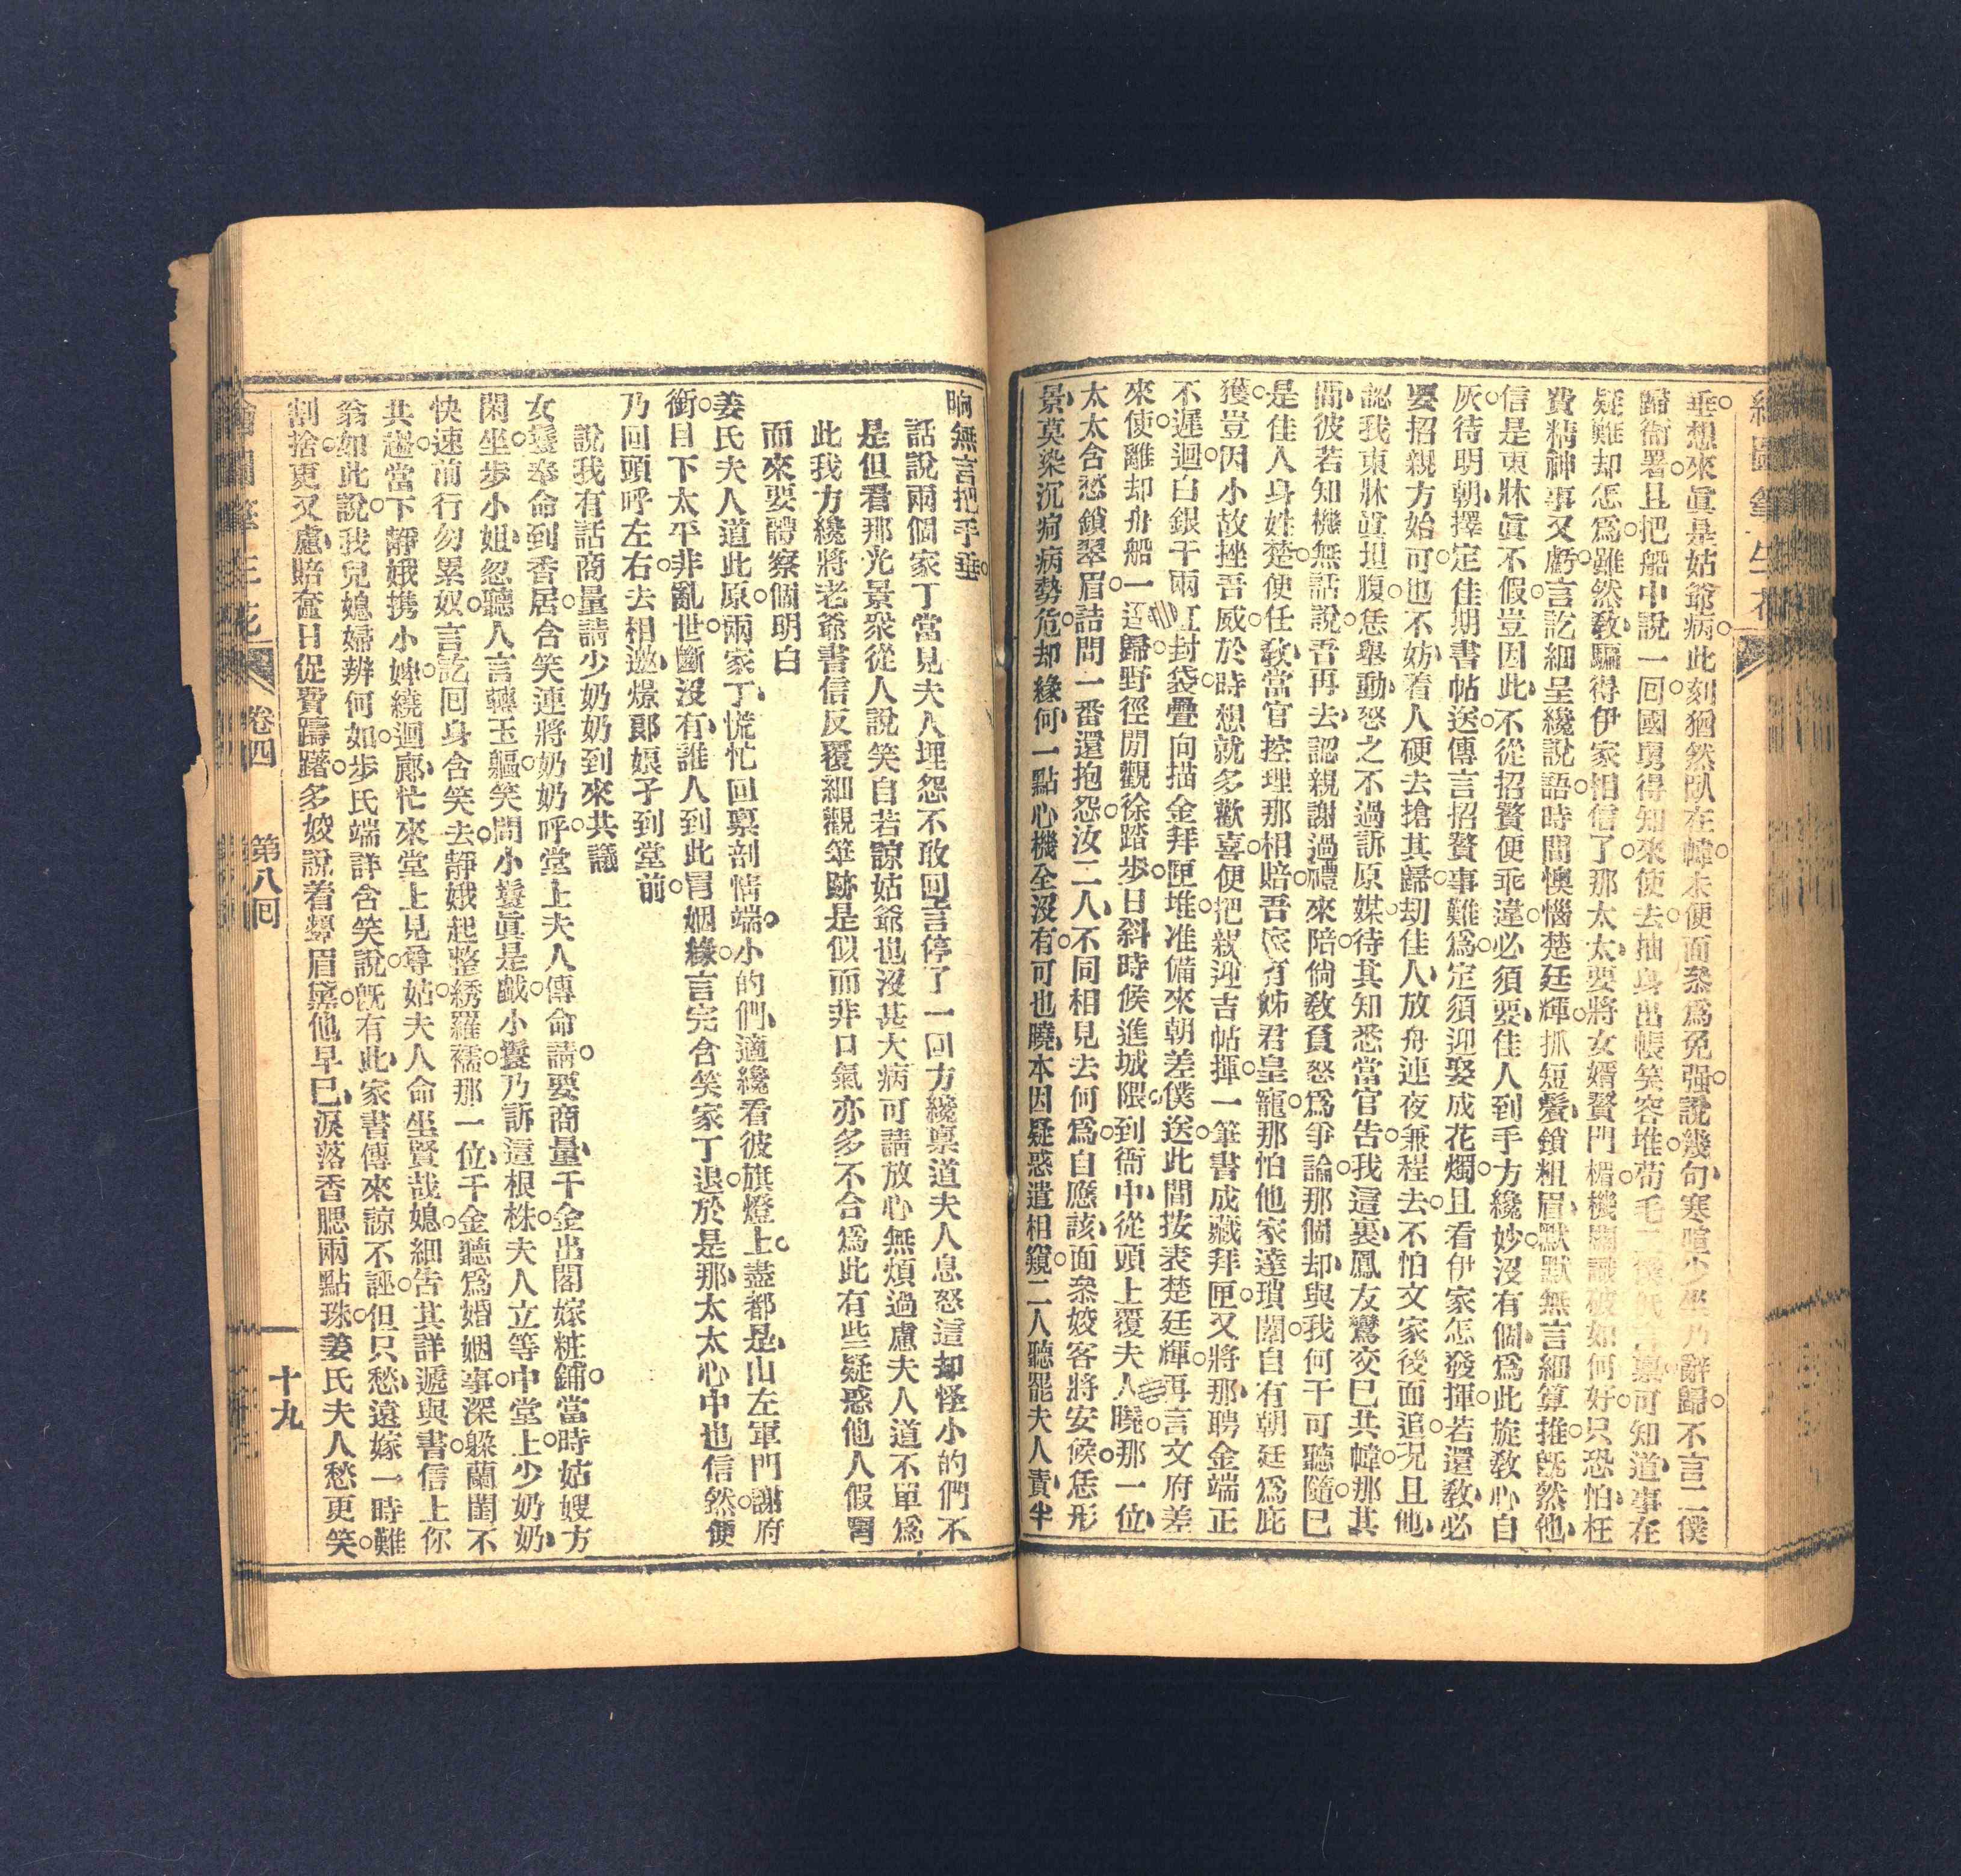 垂想來眞是姑爺病此刻猶然臥在幃未便面叅爲免强說幾句寒暄少坐乃辭歸不言二僕
歸衙署且把船中說一回國舅得知來使去抽身出帳笑容堆苟毛二僕低言禀可知道事在
疑難却怎爲雖然教騙得伊家相信了那太太要將女婿贅門楣機關識破如何好只恐怕枉
費精神事又虧言訖細呈纔說語時間懊惱楚廷輝抓短鬂鎖粗眉默默無言細算推旣然他
信是東牀眞不假豈因此不從招贅便乖違必須要佳人到手方纔妙沒有個爲此旋教心自
灰待明朝擇定佳期書帖送傳言招贅事難爲定須迎娶成花燭且看伊家怎發揮若還教必
要招親方始可也不妨着人硬去搶其歸刧佳人放舟連夜兼程去不怕文家後面追况且他
認我東牀眞坦腹恁舉動怒之不過訴原媒待其知悉當官告我這裏鳳友鸞交已共幃那其
間彼若知機無話說吾再去認親謝過禮來陪倘敎負怒爲爭論那個却與我何干可聽隨已
是佳人身姓楚便任教當官控理那相賠吾家有姊君皇寵那怕他家達瑣闈自有朝廷爲庇
獲豈因小故挫吾威於時想就多歡喜便把親迎吉帖揮一筆書成藏拜匣又將那聘金端正
不遲迴白銀千兩紅封袋疊向描金拜匣堆准備來朝差僕送此間按表楚廷輝再言文府差
來使離却舟船一逕歸野徑閒觀徐踏步日斜時候進城隈到衙中從頭上覆夫人曉那一位
太太含愁鎖翠眉詰問一番還抱怨汝二人不同相見去何爲自應該面叅姣客將安候恁形
景莫染沉疴病勢危却緣何一點心機全沒有可也曉本因疑惑遣相窺二人聽罷夫人責半
晌無言把手垂
話說兩個家丁當見夫人埋怨不敢回言停了一回方纔禀道夫人息怒這却怪小的們不
是但看那光景衆從人說笑自若諒姑爺也沒甚大病可請放心無煩過慮夫人道不單爲
此我方纔將老爺書信反覆細觀筆跡是似而非口氣亦多不合爲此有些疑惑他人假冒
而來要體察個明白
姜氏夫人道此原兩家丁慌忙回禀剖情端小的們適纔看彼旗燈上盡都是山左軍門謝府
銜目下太平非亂世斷沒有誰人到此冒姻緣言完含笑家丁退於是那太太心中也信然便
乃回頭呼左右去相邀燝郎娘子到堂前
說我有話商量請少奶奶到來共議
女鬟奉命到香居含笑連將奶奶呼堂上夫人傳命請要商量千金出閣嫁粧鋪當時姑嫂方
閑坐步小姐忽聽人言轉玉軀笑問小鬟眞是戲小鬟乃訴這根株夫人立等中堂上少奶奶
快速前行勿累奴言訖回身含笑去靜娥起整綉羅襦那一位千金聽爲婚姻事深躱蘭閨不
共趨當下靜娥携小婢繞迴廊忙來堂上見尊姑夫人命坐賢哉媳細告其詳遞與書信上你
翁如此說我兒媳婦辨何如步氏端詳含笑說旣有此家書傳來諒不誣但只愁遠嫁一時難
割捨更又慮賠奩日促費躊躇多姣說着顰眉黛他早已淚落香腮兩點珠姜氏夫人愁更笑
卷四 第八回 十九